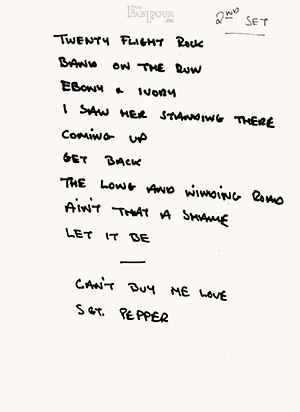 FABFOUR
2ND SET
TWENTY FLIGHT ROCK
BAND ON THE RUN
EBONY & IVORY
I SAW HER STANDING THERE
COMING UP
GET BACK
THE LONG AND WINDING ROAD
AIN'T THAT A SHAME
LET IT BE
—
CAN'T BUY ME LOVE
SGT. PEPPER